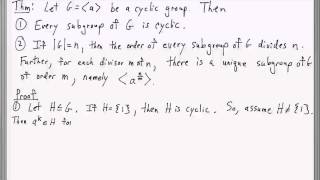 Thm: Let G=<a> be a cyclic group. Then
① Every subgroup of G is cyclic.
② If |G|=n, then the order of every subgroup of G divides n.
Further, for each divisor m of n, there is a unique subgroup of G
of order m, namely <a^{n/m}>
Proof
① Let H≤G. If H={1}, then H is cyclic. So, assume H≠{1}.
Then a^k∈H for